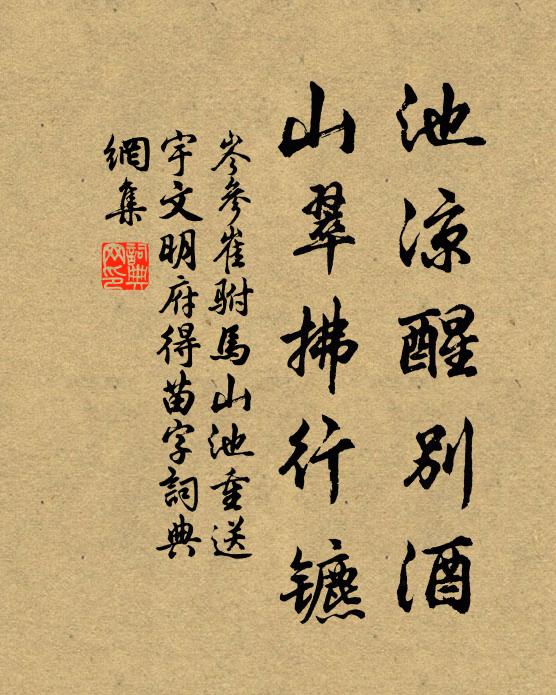 池涼醒別酒
山翠拂行鑣
岑參崔駙馬山池重送
宇文明府得苗字詞典
網集
詞典網印